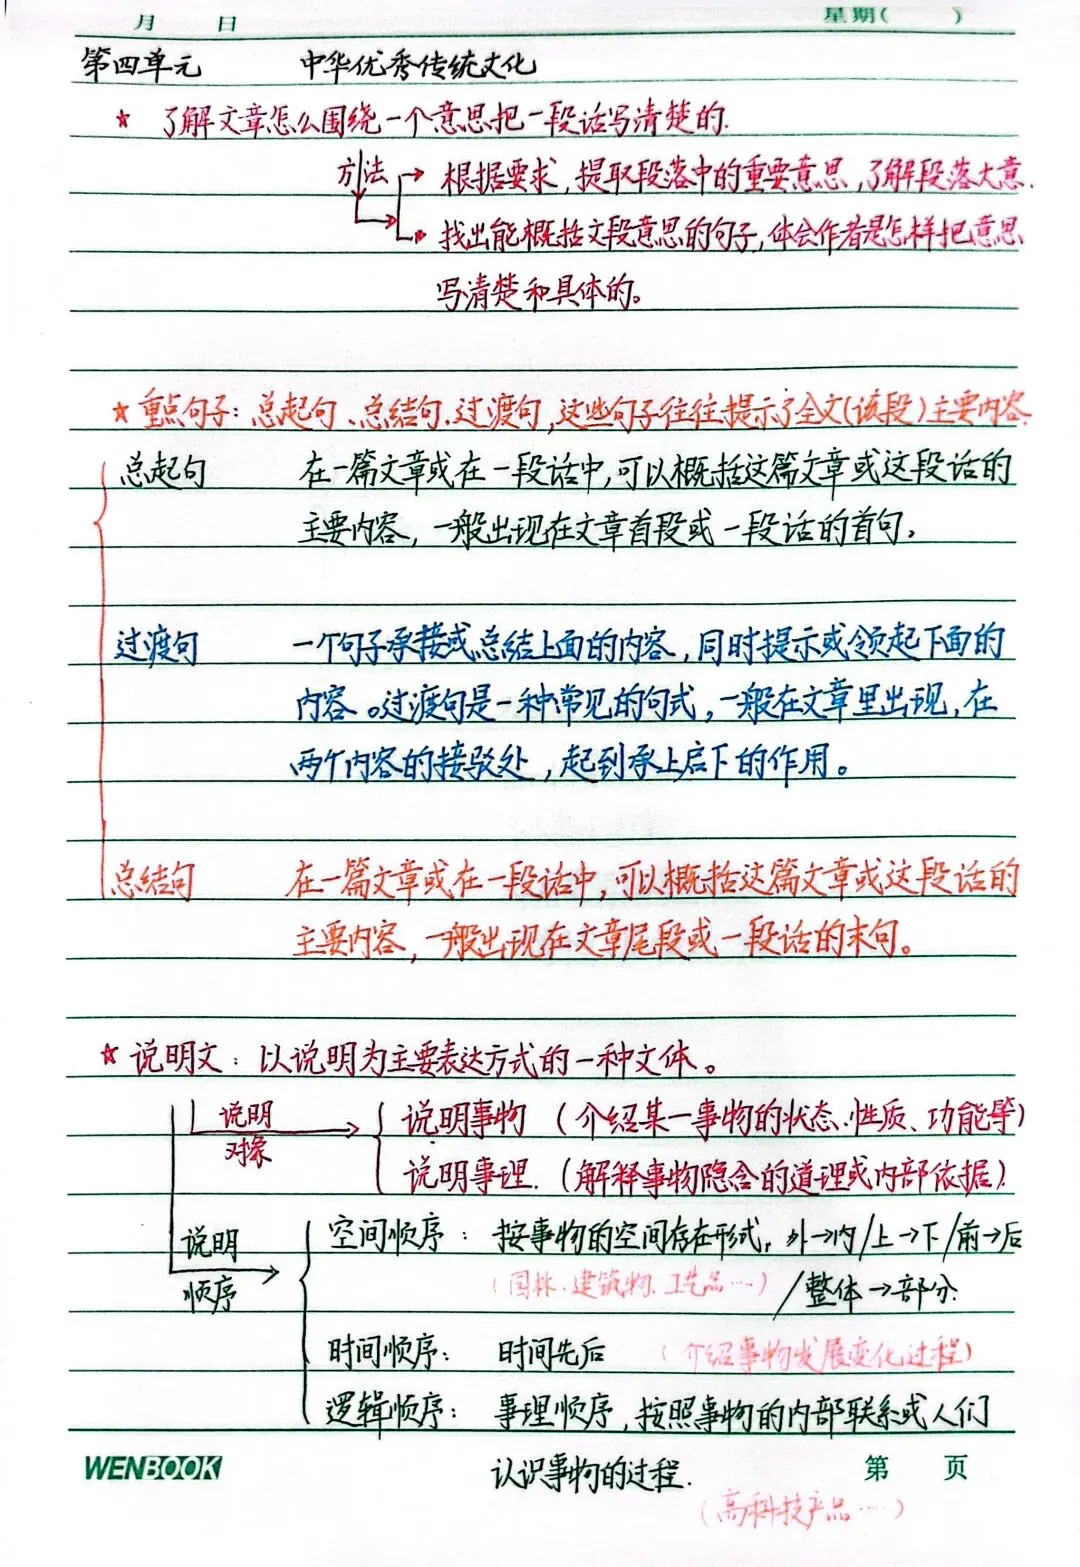 月 日 星期( )
第四单元 中华优秀传统文化
★ 了解文章怎么围绕一个意思把一段话写清楚的.
方法 → 根据要求,提取段落中的重要意思,了解段落大意.
→ 找出能概括文段意思的句子,体会作者是怎样把意思
写清楚和具体的。
★ 重点句子:总起句、总结句.过渡句,这些句子往往提示了全文(该段)主要内容.
总起句 在一篇文章或在一段话中,可以概括这篇文章或这段话的
主要内容,一般出现在文章首段或一段话的首句。
过渡句 一个句子承接或总结上面的内容,同时提示或领起下面的
内容。过渡句是一种常见的句式,一般在文章里出现,在
两个内容的接驳处,起到承上启下的作用。
总结句 在一篇文章或在一段话中,可以概括这篇文章或这段话的
主要内容,一般出现在文章尾段或一段话的末句。
★ 说明文:以说明为主要表达方式的一种文体。
说明 → 说明事物 (介绍某一事物的状态、性质、功能等)
对象 说明事理.(解释事物隐含的道理或内部依据).
说明 空间顺序: 按事物的空间存在形式, 外→内/上→下/前→后
顺序 → (园林.建筑物.工艺品……) /整体→部分.
时间顺序: 时间先后 (介绍事物发展变化过程)
逻辑顺序: 事理顺序,按照事物的内部联系或人们
WENBOOK 认识事物的过程. 第 页
(高科技产品……)